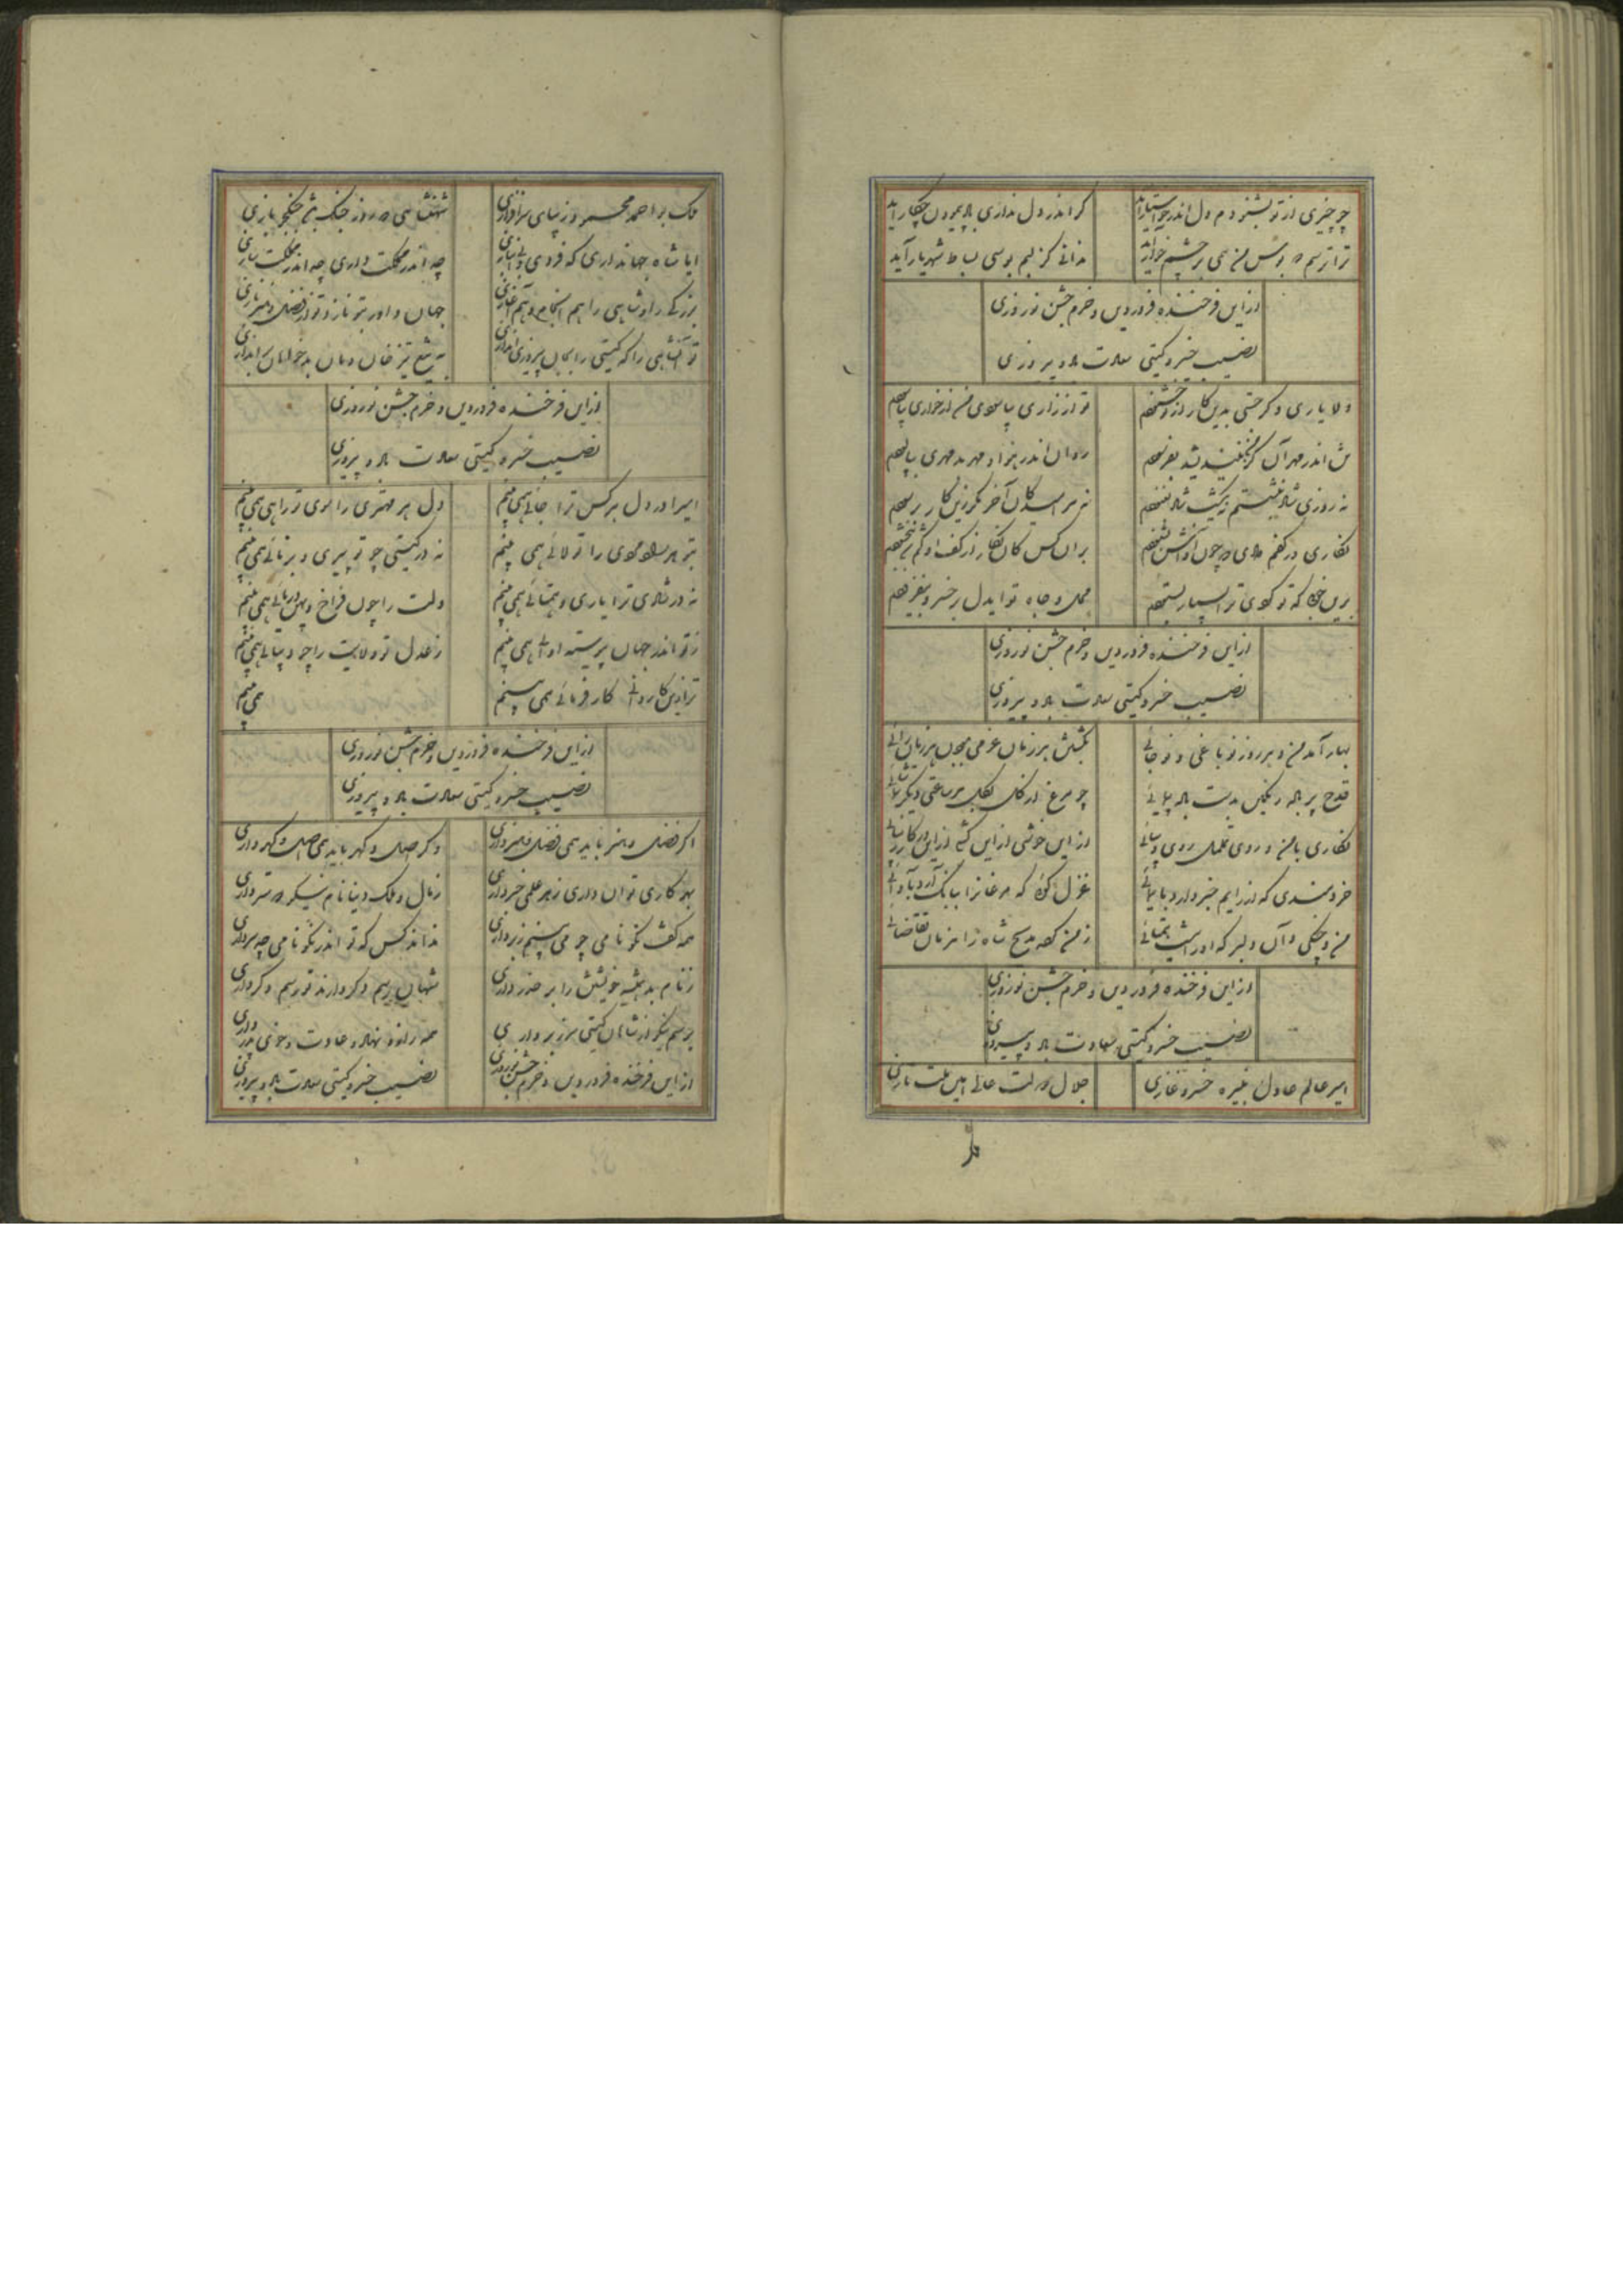 چو چیزی از تو بشنودم دل اندر خواستار آید گر اندر دل نداری با بیرون چکار آید
ترا ترسم که بوس من همی بر چشم خوار آید ندانی کز لبم بوسی بساط شهریار آید
از این فرخنده فروردین و خرم جشن نوروزی
نصیب خسرو گیتی سعادت باد و پیروزی
دلا یاری و گر جستی بدین کار از تو خشنودم تو از زاری بیاسودی من از خواری بیاسودم
روان اندر هوا و مهر بد مهری
نه روزی شاد بنشستم نه یک شب شاد بغنودم
نگاری در کفم دادی که چون او کس بنشنودم بر آن کس کان نگار از کف او گم
بدین خوبی که تو کردی ترا بسیار بستودم محل و جاه تو ایدل بر خسرو بیفزودم
از این فرخنده فروردین و خرم جشن نوروزی
نصیب خسرو گیتی سعادت باد و پیروزی
بهار آمد من و هر روز نو باغی و نو جائی بگشتن هر زمان عزمی بجوی هر زمان رائی
قدح پر باده رنگین بدست باده پیمائی چو مرغ از گل بگل هر ساعتی دیگر تماشائی
نگاری با من و روی نگاری روی دیبائی از این خوشی از این کشی از این در کار زیبائی
خردمندی که از رایم خبر دارد بایمائی غزل گوئی که مرغانرا ببانگ آرد بآوائی
من و چنگی و آن دلبر که او را نیست همتائی ز من گه مدیح شاه را هر زمان تقاضائی
از این فرخنده فروردین و خرم جشن نوروزی
نصیب خسرو گیتی سعادت باد و پیروزی
امیر عالم عادل نبیره خسرو غازی جلال دولت عالی امین ملت تازی
ملک
ملک بو احمد محمود زیبای سرافرازی شهنشاهی که روز جنگ با جنگجو بازی
ایا شاه جهانداری که فردی و بی انبازی چه اندر مملکت داری چه اندر مملکت سازی
بزرگی را و شاهی را هم انجام و هم آغازی جهان داور بتو نازد تو از فضل و هنر نازی
تو آنشاهی را که گیتی را بجان پیروزی اندازی به تیغ تیز خان و مان بدخواهان براندازی
از این فرخنده فروردین و خرم جشن نوروزی
نصیب خسرو گیتی سعادت باد و پیروزی
امیرا در دل هر کس ترا جائی همی بینم دل هر مهتری را سوی تو راهی همی بینم
بتو هر را تولائی همی بینم نه در گیتی چو تو پیری و برنائی همی بینم
نه در شادی ترا یاری و همتائی همی بینم دلت را چون فراخ و پهن دریائی همی بینم
ز تو اندر جهان پیوسته آوائی همی بینم ز عدل تو ولایت را چو دیبائی همی بینم
ترا زین کاردانی کارفرمائی همی بینم همی بینم
از این فرخنده فروردین و خرم جشن نوروزی
نصیب خسرو گیتی سعادت باد و پیروزی
اگر فضل و هنر باید همی فضل و هنر داری و گر اصل و گهر باید همی اصل و گهر داری
بهر کاری توان داری ز هر علمی خبر داری ز مال و ملک دنیا نام نیکو دوستر داری
همه گفت نکو نامی چو می بینم ز بر داری نداند کس که تو اندر نکو نامی چه سر داری
ز نام بد همیشه خویشتن را بر حذر داری شهان بی رسم و کردارند تو رسم و کرداری
برسم نیکو از شاهان گیتی سر زبر داری همه زاد و نهاد و عادت و خوی پدر داری
از این فرخنده فروردین و خرم جشن نوروزی نصیب خسرو گیتی سعادت باد و پیروزی